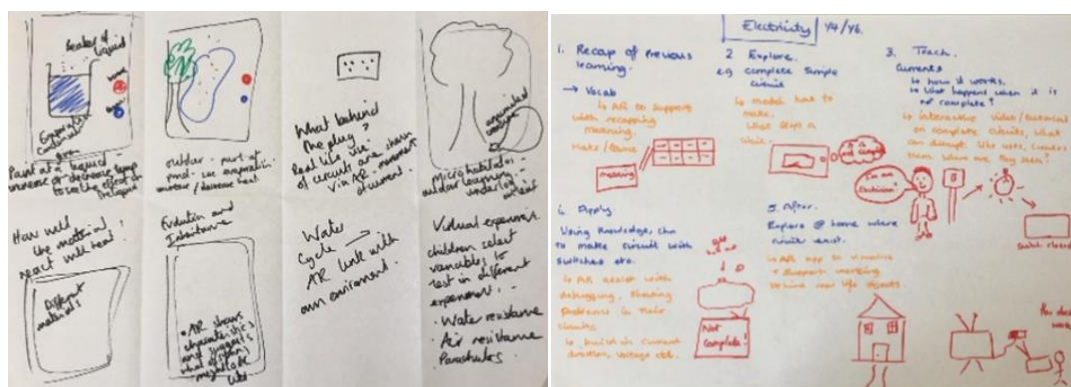 Beaker of
liquid
Point at a liquid
increase or decrease temp
to see the effect on
outdoor - part of
pond - see evaporation
increase / decrease heat.
What behind
the plug?
Real life use
of circuits are shown
via AR - movement
of current.
Microhabitats -
outdoor learning -
How well
the material
react with heat!
Different
materials
Evolution and
Inheritance
AR shows
characteristics
and suggests
what offspring
might look
like
Water
Cycle →
AR link with
own environment.
Virtual experiment.
children select
variables to
test in different
experiment. -
· Water resistance
· Air resistance
Parachutes
Electricity Y4/Y6.
1. Recap of Previous
learning.
→ Vocab
↳ AR to support
with recapping
meaning.
Make / Game
meaning
2 Explore.
e.g complete simple
circuit
↳ model how to
make.
What stops a
3. Teach.
Currents
↳ how it works.
↳ What happens when it is
not complete?
↳ interactive video/tutorial
on complete circuits, what
can disrupt. Who uses circuits
I'm an
Electrician!
Switch closed
4. Apply
Using knowledge, chn
to make circuit with
switches etc.
↳ AR assist with
debugging, showing
problems in their
circuits
↳ build in current
direction, voltage etc.
Not
Complete!
5. After.
Explore @ home where
circuit exist.
↳ AR app to visualise
+ support working
behind real life objects.